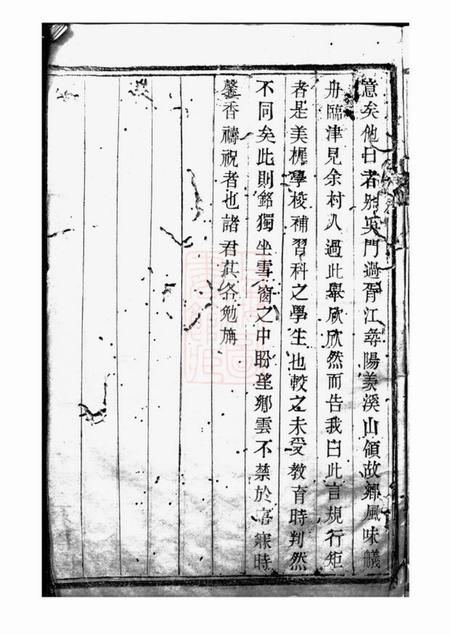 意矣他日者別吳門過胥江尋陽羨溪山領故鄉風味艤
舟臨津見余村人過此舉欣欣然而告我曰此言規行矩
者是美樨學校補習科之學生也較之未受教育時判然
不同矣此則鄒獨坐雪窗之中盼望鄉雲不禁於寤寐時
馨香禱祝者也諸君其各勉旃